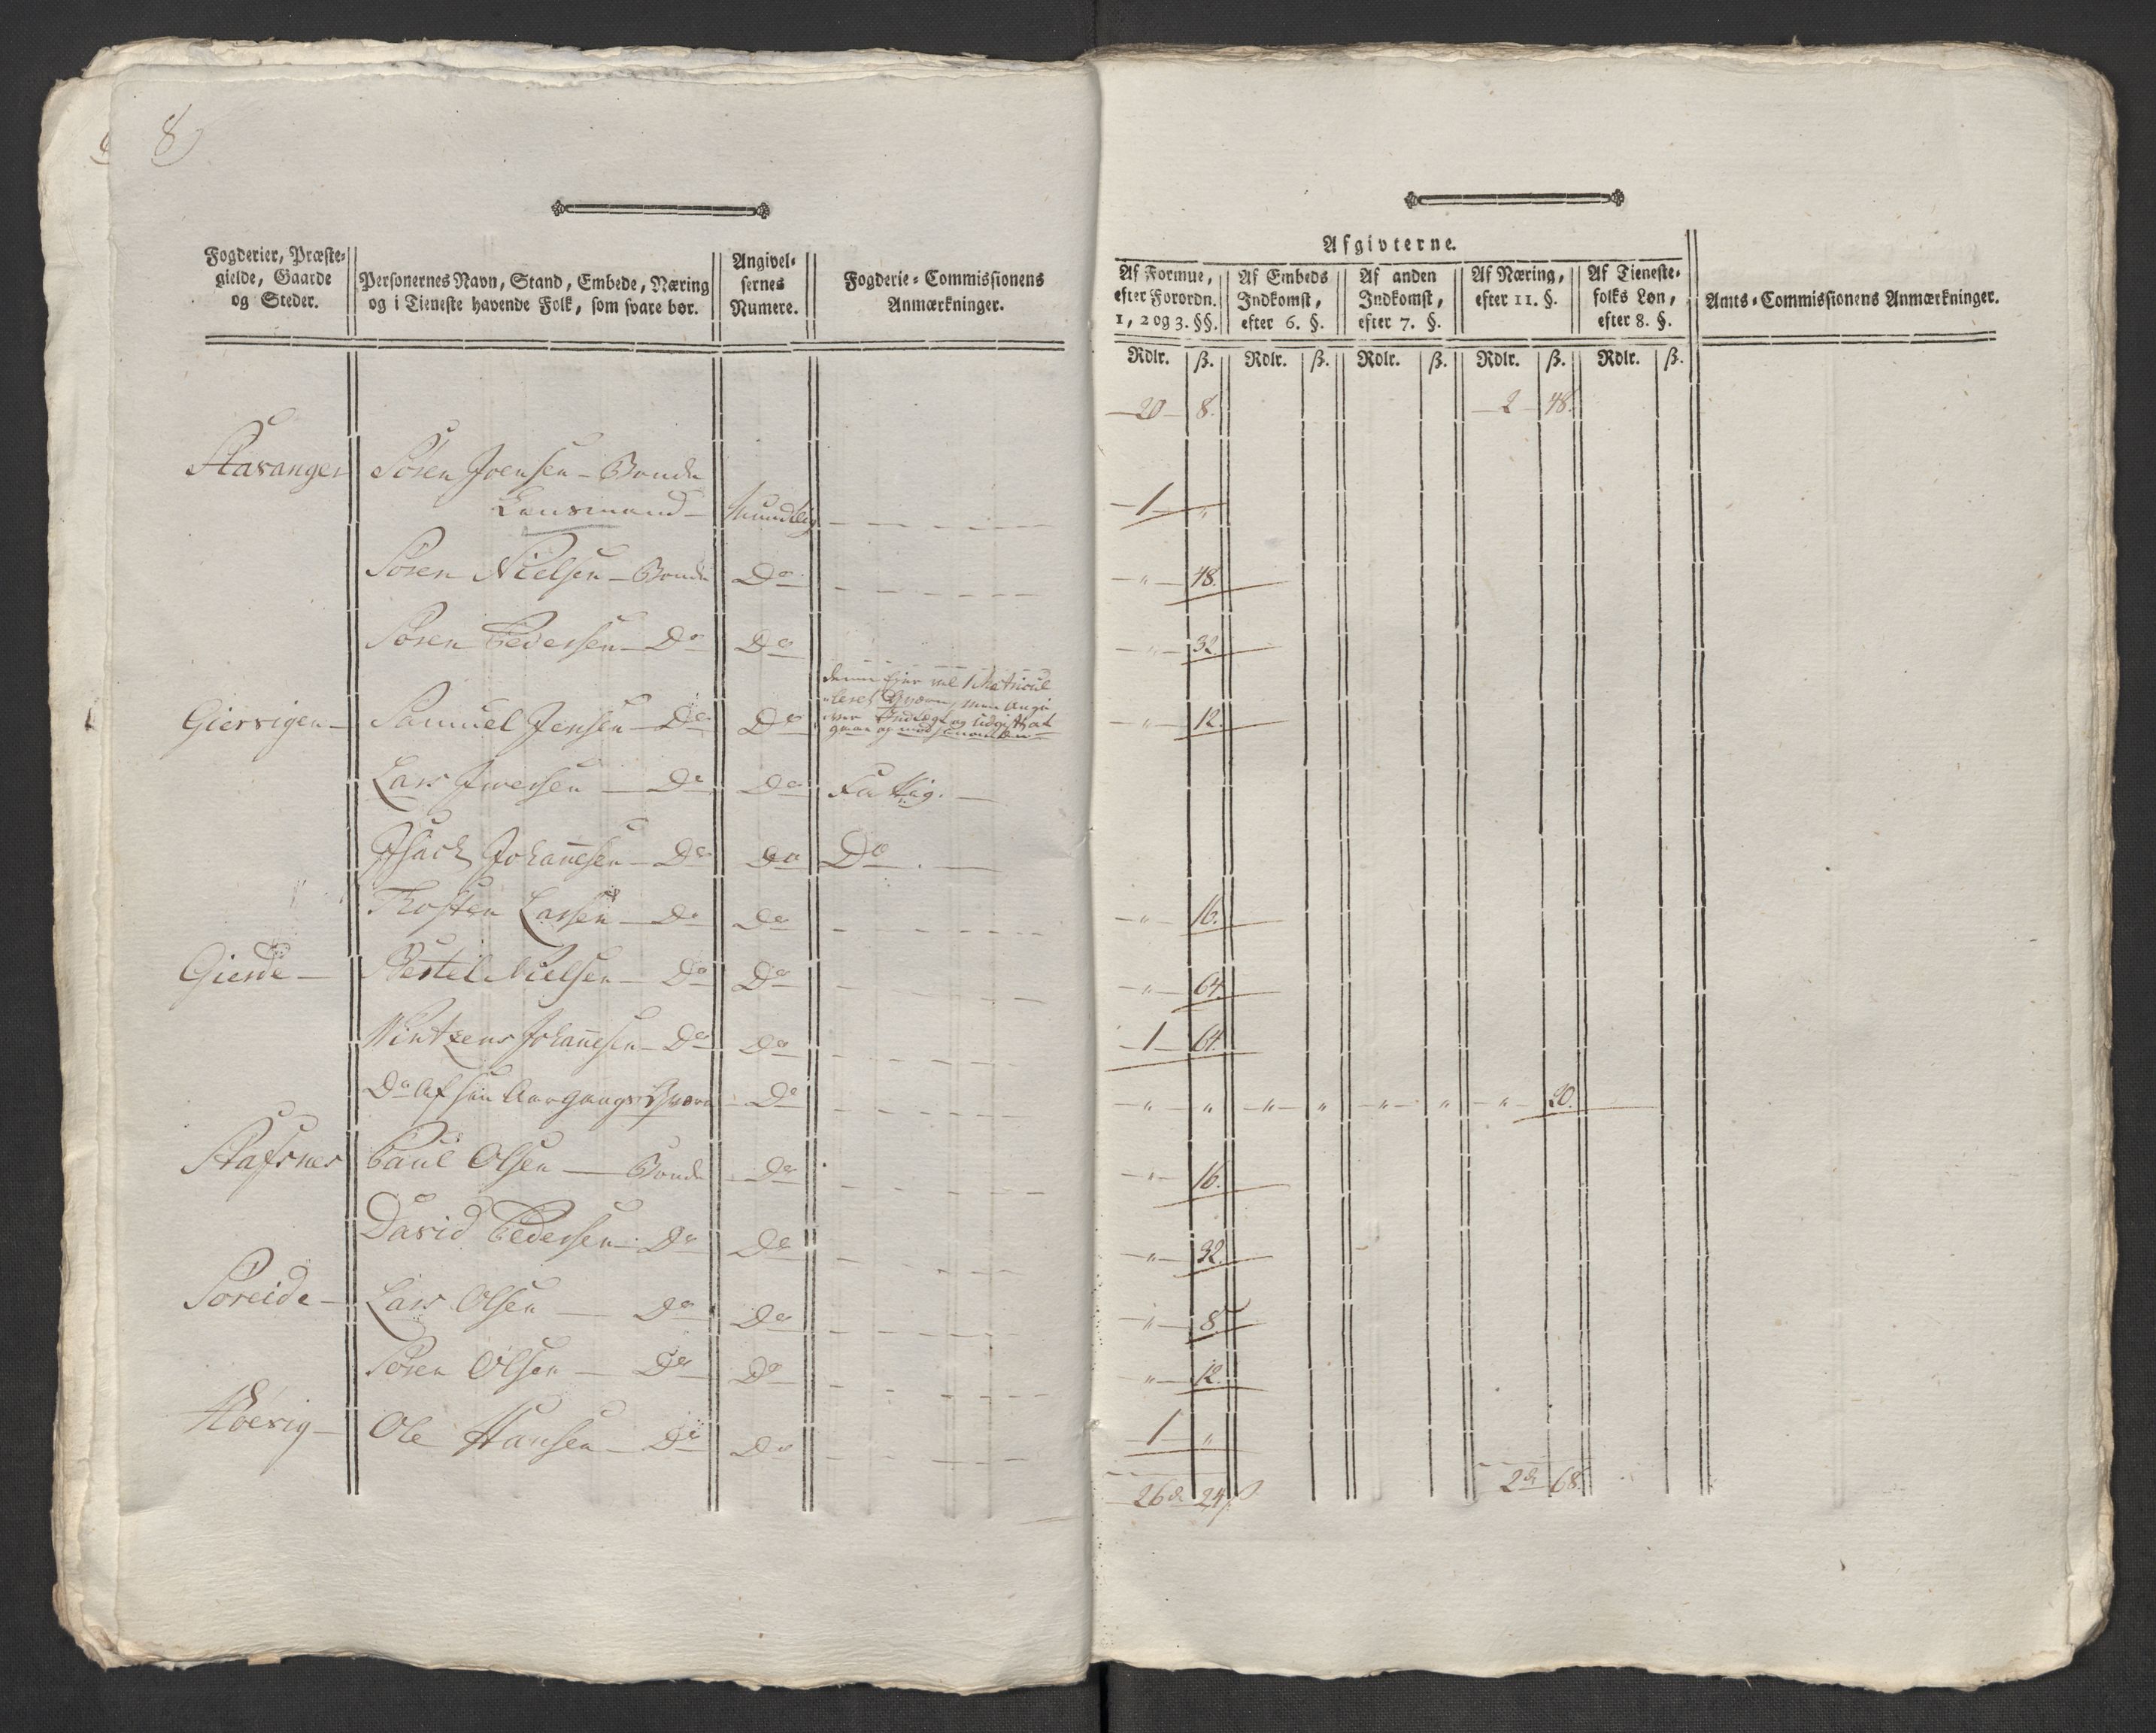 8
Fogderier, Præste-
gielde, Gaarde
og Steder.
Personernes Navn, Stand, Embede, Næring
og i Tieneste havende Folk, som svare bør.
Angivel-
sernes
Numere.
Fogderie-Commissionens
Anmærkninger.
Afgivterne.
Af Formue,
efter Forordn.
1, 2 og 3. §§.
Af Embeds
Indkomst,
efter 6. §.
Af anden
Indkomst,
efter 7. §.
Af Næring,
efter 11. §.
Af Tieneste-
folks Løn,
efter 8. §.
Amts-Commissionens Anmærkninger.
Rdlr. ß. Rdlr. ß. Rdlr. ß. Rdlr. ß. Rdlr. ß.
20 8. 2 48.
Stavanger Sören Joensen - Bonde
Lensmand - Mundtlig 1 "
Sören Nielsen - Bonde Do " 48.
Sören Pedersen - Do Do " 32.
Giersvigen - Samuel Jensen - Do Do " 12.
Lars Iversen - Do Do Fattig.
Isach Johannesen - Do Do Do
Thosten Larsen - Do Do " 16.
Gierde - Bertil Nielsen - Do Do " 64.
Wintzens Johannesen - Do Do 1 64.
Do Af sin Aargangs Qværn Do " " " " " " " 20.
Stafsnes Paul Olsen - Bonde Do " 16.
David Pedersen - Do Do " 32.
Soreide - Lars Olsen - Do Do " 8
Sören Olsen - Do Do " 12.
Hoevig - Ole Hansen - Do Do 1 "
26 d. 24 ß 2 d. 68.